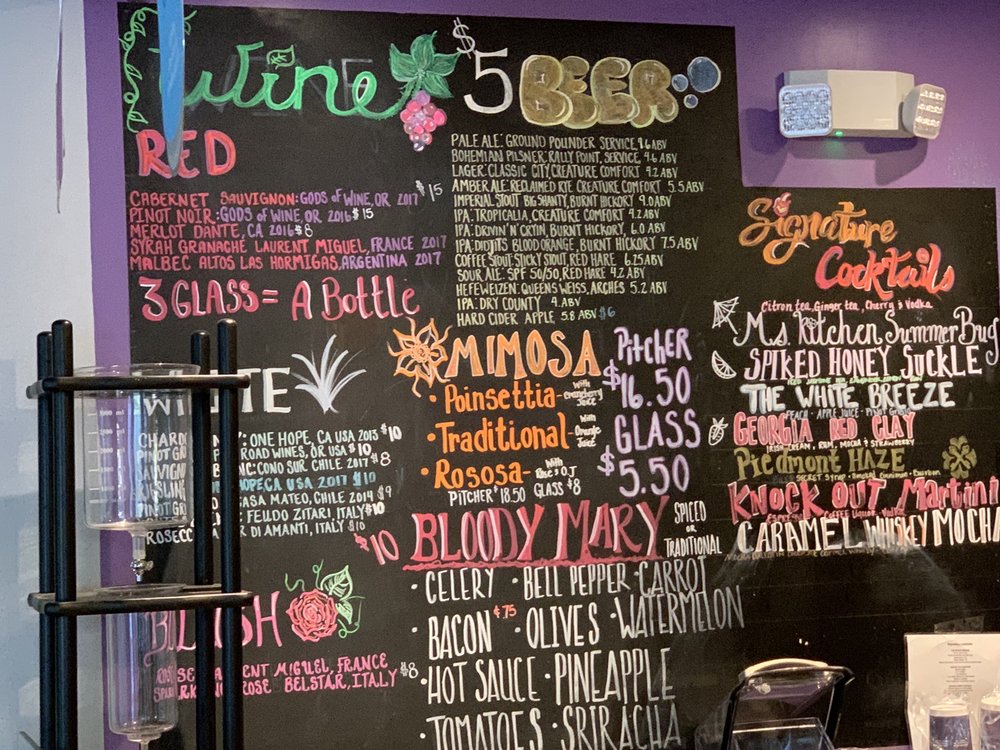 Wine
RED
CABERNET SAUVIGNON: GODS of WINE, OR 2017 $15
PINOT NOIR: GODS of WINE, OR 2016 $15
MERLOT DANTE, CA 2016 $8
SYRAH GRANACHE LAURENT MIGUEL, FRANCE 2017
MALBEC ALTOS LAS HORMIGAS, ARGENTINA 2017
3 GLASS = A Bottle
ONE HOPE, CA USA 2013 $10
ROAD WINES, OR USA $10
CONO SUR CHILE 2017 $8
HOPE CA USA 2017 $10
CASA MATEO, CHILE 2014 $9
FEUDO ZITARI, ITALY $10
DI AMANTI, ITALY $10
BLUSH
MIGUEL, FRANCE
ROSE BELSTAR, ITALY $8
$5 BEER
PALE ALE: GROUND POUNDER SERVICE, 4.6 ABV
BOHEMIAN PILSNER: RALLY POINT, SERVICE, 4.6 ABV
LAGER: CLASSIC CITY, CREATURE COMFORT 4.2 ABV
AMBER ALE: RECLAIMED RYE CREATURE COMFORT 5.5 ABV
IMPERIAL STOUT BIG SHANTY, BURNT HICKORY 9.0 ABV
IPA: TROPICALIA, CREATURE COMFORT 4.2 ABV
IPA: DRIVIN' N' CRYIN, BURNT HICKORY, 6.0 ABV
IPA: DIDJITS BLOOD ORANGE, BURNT HICKORY 7.5 ABV
COFFEE STOUT: STICKY STOUT, RED HARE 6.25 ABV
SOUR ALE: SPF 50/50, RED HARE 4.2 ABV
HEFEWEIZEN: QUEENS WEISS, ARCHES 5.2 ABV
IPA: DRY COUNTY 4. ABV
HARD CIDER APPLE 5.8 ABV $6
MIMOSA
• Poinsettia - with cranberry Juice
• Traditional - with Orange Juice
• Rososa - with Rose & O.J
PITCHER $ 18.50 GLASS $8
PITCHER
$16.50
GLASS
$5.50
$10 BLOODY MARY SPICED or TRADITIONAL
• CELERY • BELL PEPPER • CARROT
• BACON ¢75 • OLIVES • WATERMELON
• HOT SAUCE • PINEAPPLE
TOMATOES • SRIRACHA
Signature
Cocktails
Citron tea, Ginger tea, Cherry & Vodka
Ms. Kitchen Summer Bug
SPIKED HONEY SUCKLE
THE WHITE BREEZE
PEACH - APPLE JUICE - PINOT GRIGIO
GEORGIA RED CLAY
IRISH CREAM, RUM, MOCHA & STRAWBERRY
Piedmont HAZE
KNOCK OUT Martini
CARAMEL WHISKEY MOCHA